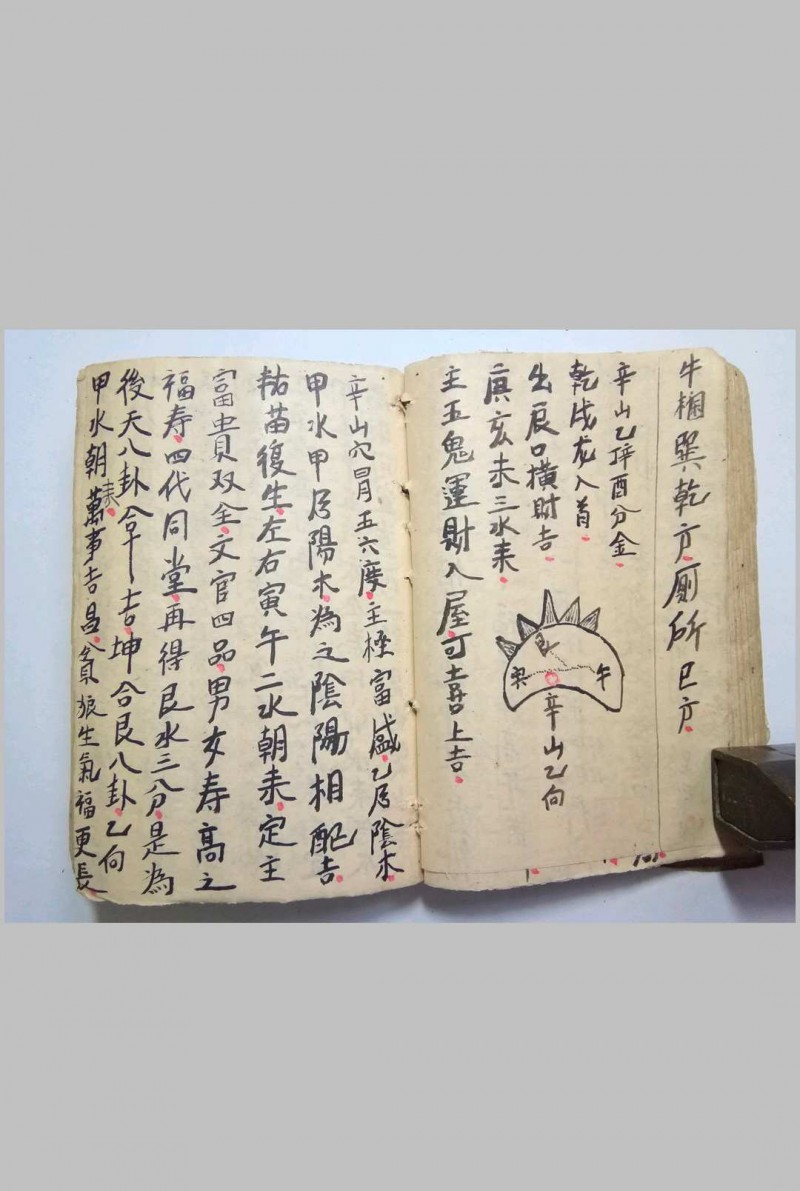 牛栏巽乾方厠所巳方
辛山乙辛酉分金
乾戌龙入首
出辰口横財吉
庚亥未三水来
主五鬼運財入屋可喜上吉
艮
午
辛山乙向
辛山穴四五六度主極富盛乙乃陰木
甲水甲乃陽木為之陰陽相配吉
枯苗復生左右寅午二水朝来定主
富貴双全文官四品男女寿高之
福寿四代同堂再得艮水三分是為
後天八卦合十吉坤合艮八卦乙向
甲水朝来萬事吉昌貪狼生氣福更長